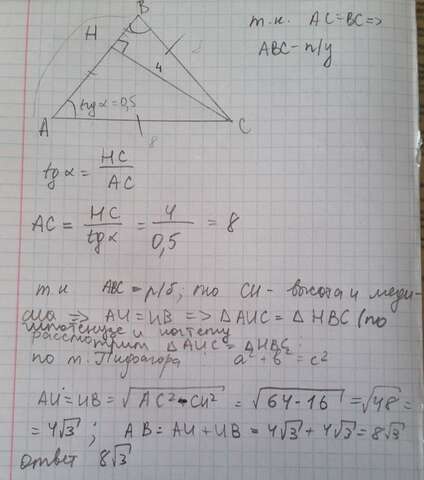 B
H
4
8
tg α = 0,5
A
C
8
т.к. AC=BC=>
ABC - п/у
tg α = HC / AC
AC = HC / tg α = 4 / 0,5 = 8
т.к ABC = р/б, то CH - высота и меди-
ана => AH = HB => △ AHC = △ HBC (по
гипотенузе и катету
рассмотрим △ AHC = △ HBC:
по т. Пифагора a² + b² = c²
AH = HB = √AC² - CH² = √64 - 16 = √48 =
= 4√3 ; AB = AH + HB = 4√3 + 4√3 = 8√3
ответ 8√3